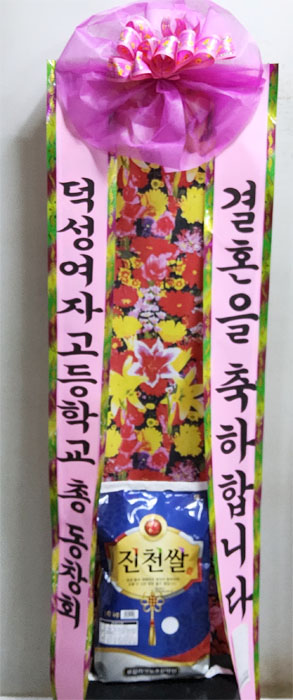 덕성여자고등학교 총 동창회
결혼을 축하합니다
진천쌀